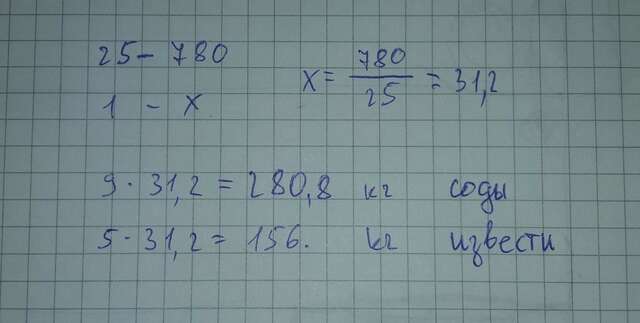 25 – 780
1 – x
x = 780/25 = 31,2
9 · 31,2 = 280,8 кг соды
5 · 31,2 = 156. кг извести